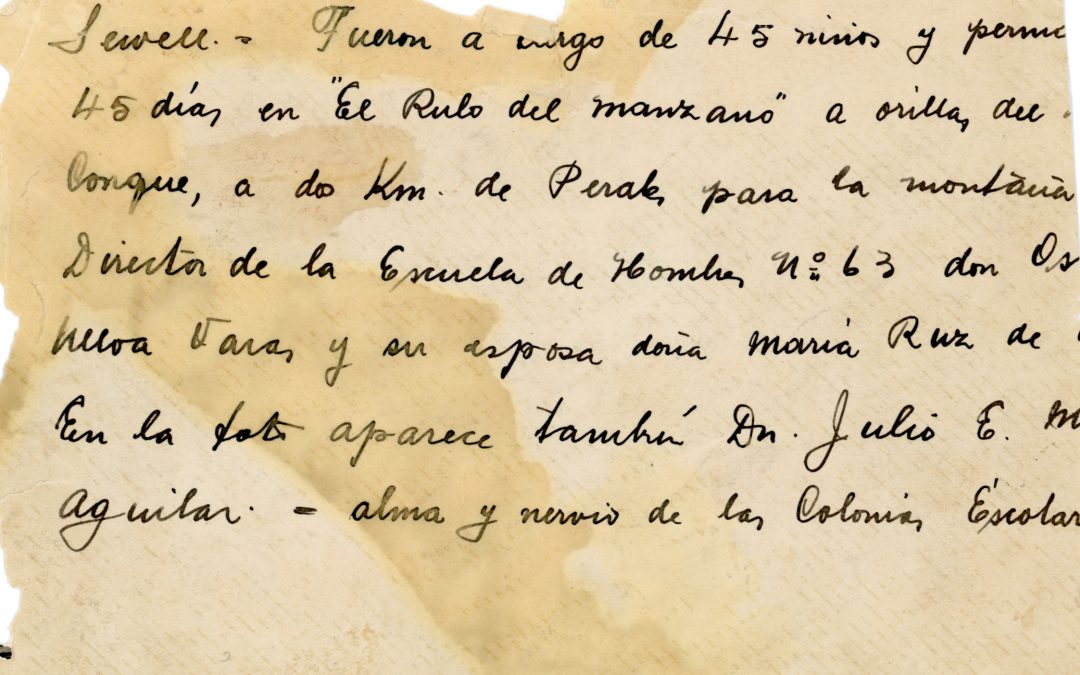 Sewell. - Fueron a cargo de 45 niños y
45 días en "El Rulo del manzano" a orillas del
Conque, a dos Km. de Perales para la montaña
Director de la Escuela de Hombres Nº 63 don Os
Ulloa Varas y su esposa doña María Ruz de
En la foto aparece también Dn. Julio E. M
Aguilar. - alma y nervio de las Colonias Escolar